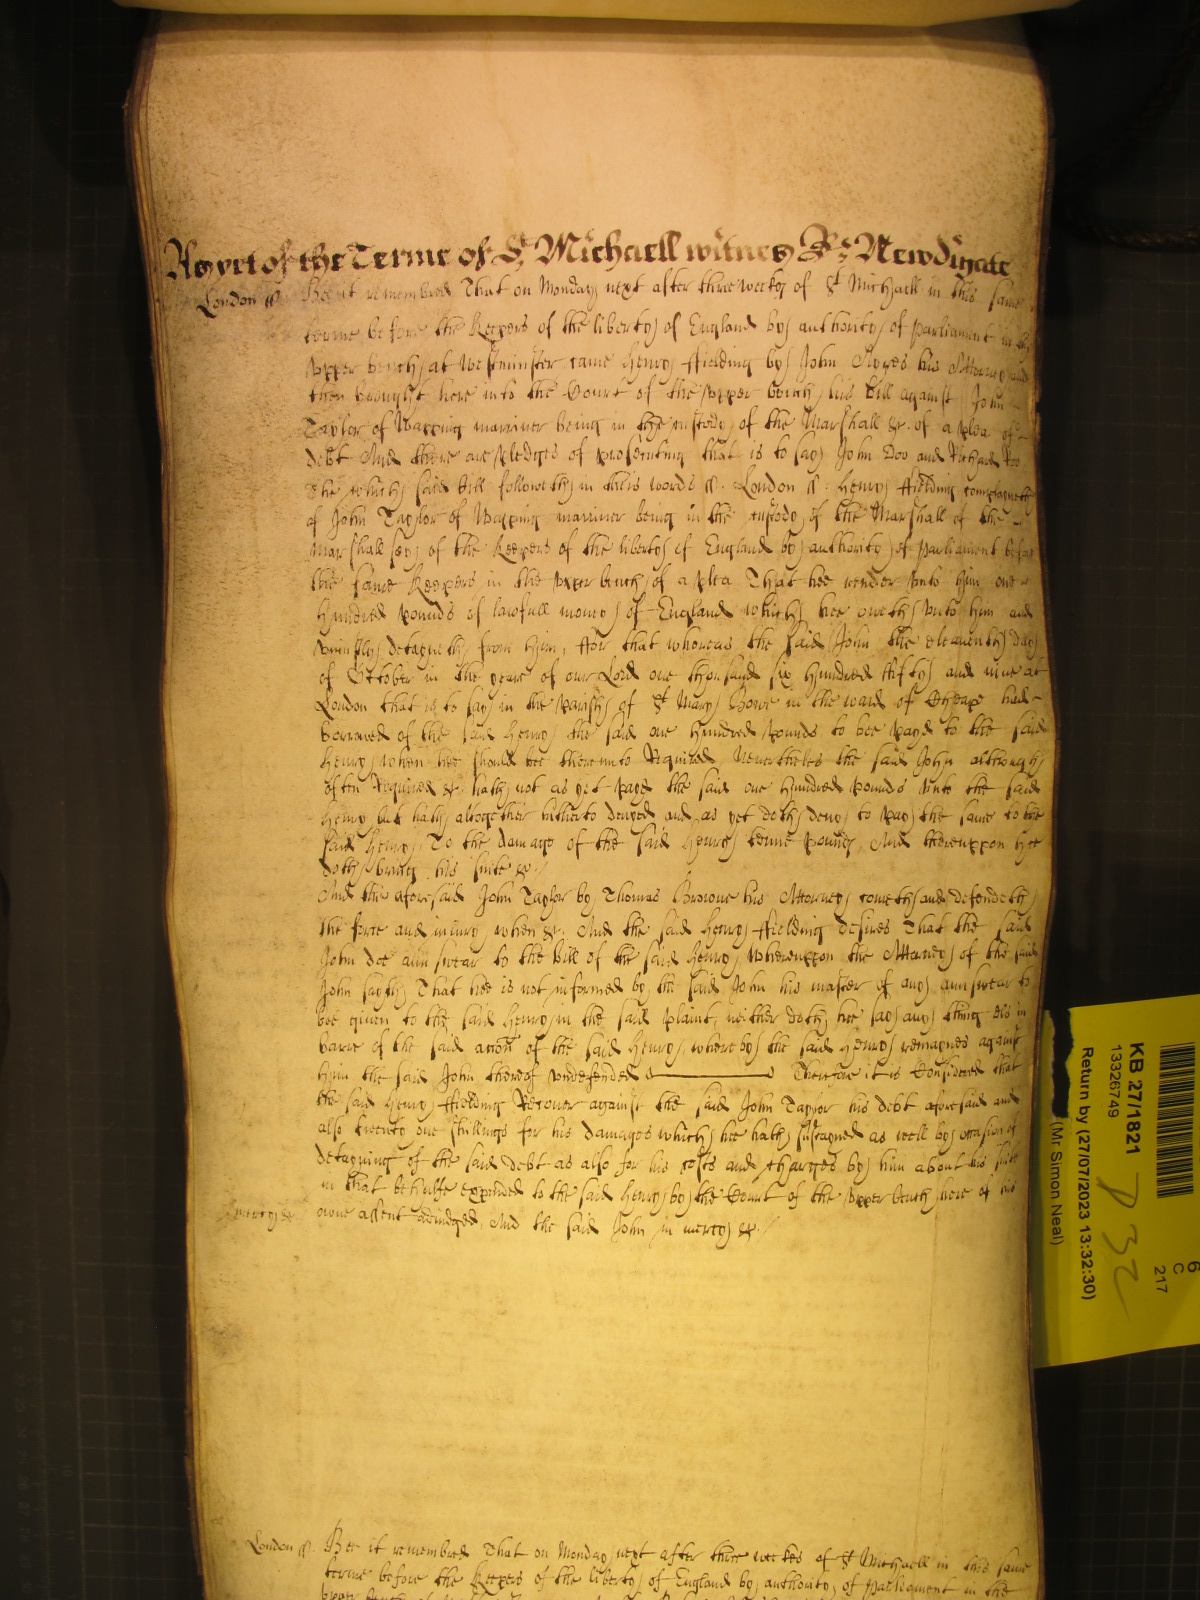 As yet of the Terme of St Michaell witnes R: Newdigate
London ss Bee it remembred That on Monday next after three weekes of St Michaell in this same
terme before the Keepers of the liberty of England by authority of Parliament in the
Upper bench at Westminster came Henry Fielding by John his Attorney and
then brought here into the Court of the upper bench his Bill against John
Taylor of Wapping marriner being in the custody of the Marshall &c. of a plea of
debt And there are pledges of prosecuting that is to say John Doo and Richard Roo
The which said Bill followeth in theis words ss. London ss: Henry Fielding complayneth
of John Taylor of Wapping marriner being in the custody of the Marshall of the
Marshallsey of the Keepers of the liberty of England by authority of Parliament before
the same Keepers in the upper bench of a plea That hee render unto him one
hundred pounds of lawfull money of England which hee oweth unto him and
uniustly detayneth from him, For that whereas the said John the eleaventh day
of October in the yeare of our Lord one thousand six hundred fifty and nine at
London that is to say in the Parish of St Mary Bowe in the ward of Cheape had
borrowed of the said Henry the said one hundred pounds to bee payd to the said
Henry when hee should bee thereunto Required Neverthelesse the said John although
often Required &c. hath not as yet payd the said one hundred pounds unto the said
Henry but hath altogether hitherto denyed and as yet doth deny to pay the same to the
said Henry, To the damage of the said Henry tenne pounds, And thereuppon hee
doth bring his suite &c.
And the aforesaid John Taylor by Thomas Browne his Attorney cometh and defendeth
the force and iniury when &c. And the said Henry Fielding desires That the said
John doe aunswear to the Bill of the said Henry, Whereuppon the Attorney of the said
John sayth That hee is not informed by the said John his master of any aunswear to
bee given to the said Henry in the said plaint, neither doth hee say any thing els in
barre of the said accon of the said Henry, whereby the said Henry remaynes against
him the said John thereof undefended Therefore it is Considered that
the said Henry Fielding Recover against the said John Taylor his debt aforesaid and
also twenty one shillings for his damages which hee hath sustayned as well by occasion of
detayning of the said debt as also for his costs and charges by him about his suite
in that behalfe expended to the said Henry by the Court of the upper bench here of his
mercy &c owne assent adiudged, And the said John in mercy &c.
London ss. Bee it remembred That on Monday next after three weekes of St Michaell in this same
terme before the Keepers of the liberty of England by authority of Parliament in the
KB 27/1821
13326749
Return by (27/07/2023 13:32:30)
(Mr Simon Neal)
6
C
217
P 32